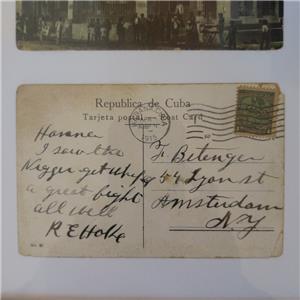 Republica de Cuba
Tarjeta postal - Post Card
1915
Havana
I saw the
Nigger get whip
a great fight
all well
R E
Betenger
44 Lyon st
Amsterdam
N.Y